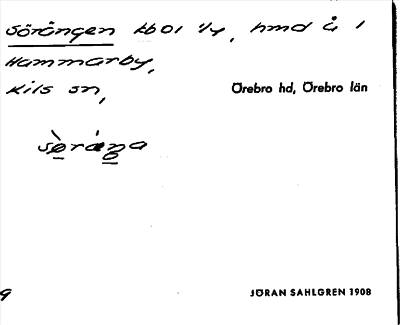 Sörängen kb01 1/4, hmd å 1
Hammarby,
Kils sn,
Örebro hd, Örebro län
sèráŋa
9
JÖRAN SAHLGREN 1908